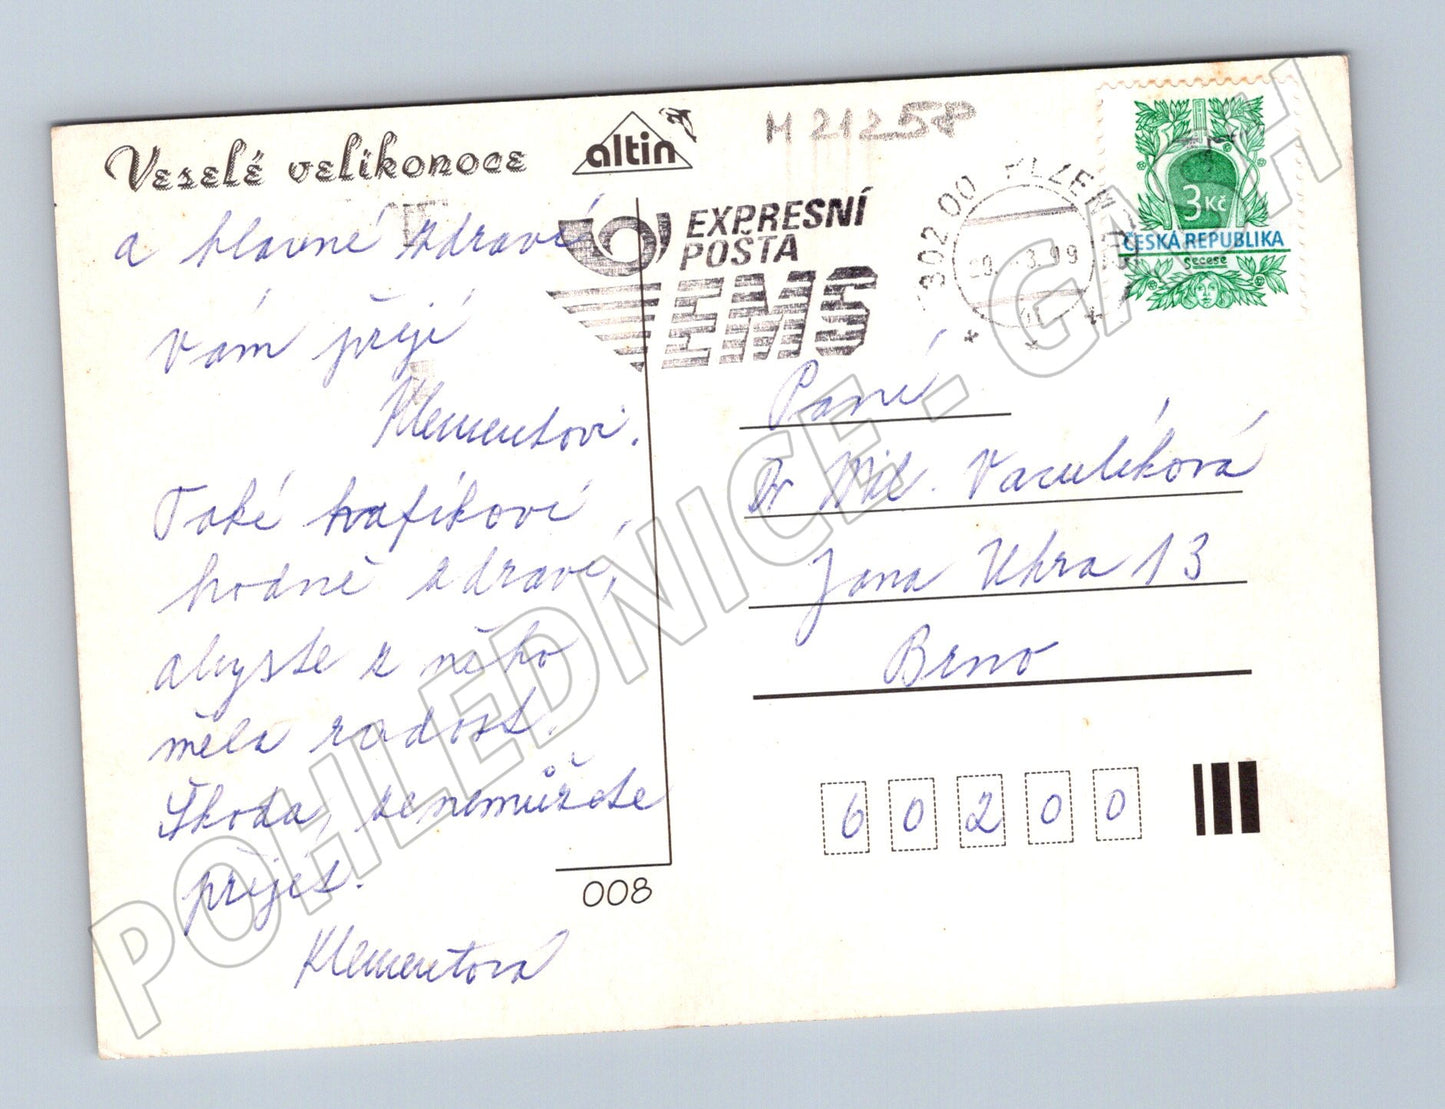 Veselé velikonoce
altin
M 21258
a hlavně zdraví
Vám přejí
Klementovi.
Také hrafíkovi,
hodně zdraví,
abyste z něho
měla radost.
Škoda, že nemůžete
přijet.
Klementová
008
EXPRESNÍ
POŠTA
EMS
302 00 PLZEŇ
29.-3.99
3 Kč
ČESKÁ REPUBLIKA
Secese
Paní
Dr Mil. Vaculíková
Jana Uhra 13
Brno
60200
POHLEDNICE - GASH